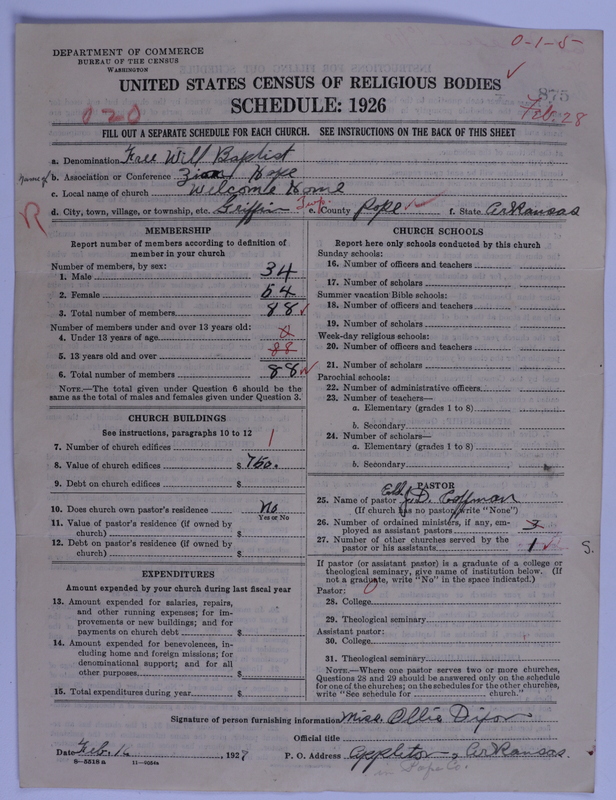 0-1-5
DEPARTMENT OF COMMERCE
BUREAU OF THE CENSUS
WASHINGTON
UNITED STATES CENSUS OF RELIGIOUS BODIES
875
SCHEDULE: 1926
Feb. 28
020
FILL OUT A SEPARATE SCHEDULE FOR EACH CHURCH. SEE INSTRUCTIONS ON THE BACK OF THIS SHEET
a. Denomination Free Will Baptist
Name of b. Association or Conference Zion Hope
c. Local name of church Welcombe Home
d. City, town, village, or township, etc. Griffin Twp. e. County Pope f. State Arkansas
R
MEMBERSHIP
Report number of members according to definition of
member in your church
Number of members, by sex:
1. Male 34
2. Female 54
3. Total number of members 88
Number of members under and over 13 years old:
4. Under 13 years of age
5. 13 years old and over 88
6. Total number of members 88
NOTE.—The total given under Question 6 should be the
same as the total of males and females given under Question 3.
CHURCH BUILDINGS
See instructions, paragraphs 10 to 12
7. Number of church edifices 1
8. Value of church edifices $ 750.
9. Debt on church edifices $
10. Does church own pastor's residence No
Yes or No
11. Value of pastor's residence (if owned by
church) $
12. Debt on pastor's residence (if owned by
church) $
EXPENDITURES
Amount expended by your church during last fiscal year
13. Amount expended for salaries, repairs,
and other running expenses; for im-
provements or new buildings; and for
payments on church debt $
14. Amount expended for benevolences, in-
cluding home and foreign missions; for
denominational support; and for all
other purposes $
15. Total expenditures during year $
CHURCH SCHOOLS
Report here only schools conducted by this church
Sunday schools:
16. Number of officers and teachers
17. Number of scholars
Summer vacation Bible schools:
18. Number of officers and teachers
19. Number of scholars
Week-day religious schools:
20. Number of officers and teachers
21. Number of scholars
Parochial schools:
22. Number of administrative officers
23. Number of teachers—
a. Elementary (grades 1 to 8)
b. Secondary
24. Number of scholars—
a. Elementary (grades 1 to 8)
b. Secondary
PASTOR
25. Name of pastor Eld. J. D. Coffman
(If church has no pastor, write "None")
26. Number of ordained ministers, if any, em-
ployed as assistant pastors
27. Number of other churches served by the
pastor or his assistants 1
S.
If pastor (or assistant pastor) is a graduate of a college or
theological seminary, give name of institution below. (If
not a graduate, write "No" in the space indicated.)
Pastor: 0
28. College
29. Theological seminary
Assistant pastor:
30. College
31. Theological seminary
NOTE.—Where one pastor serves two or more churches,
Questions 28 and 29 should be answered only on the schedule
for one of the churches; on the schedules for the other churches,
write "See schedule for church."
Signature of person furnishing information Miss. Ollie Dixon
Official title
Date Feb. 16, 1927 P. O. Address Appleton, Arkansas.
8-5518a 11-4054a in Pope Co.